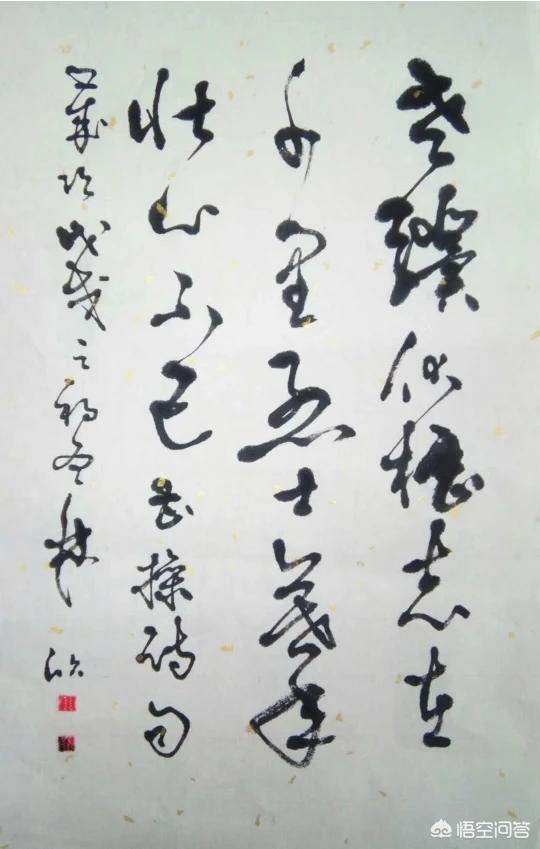 老驥伏櫪志在
千里烈士暮年
壯心不已 曹操詩句
歲次戊戌之初夏
悟空问答